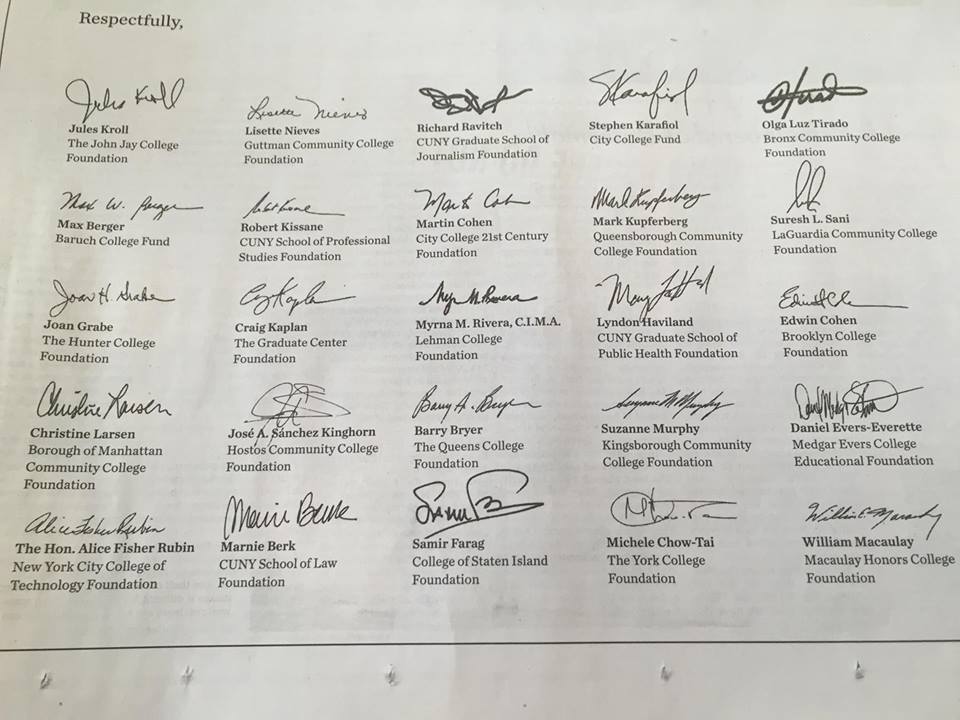 Respectfully,
Jules Kroll
Jules Kroll
The John Jay College
Foundation
Lisette Nieves
Lisette Nieves
Guttman Community College
Foundation
Richard Ravitch
CUNY Graduate School of
Journalism Foundation
SKarafiol
Stephen Karafiol
City College Fund
Olga Luz Tirado
Bronx Community College
Foundation
Max W. Berger
Max Berger
Baruch College Fund
Robert Kissane
CUNY School of Professional
Studies Foundation
Martin Cohen
City College 21st Century
Foundation
Mark Kupferberg
Mark Kupferberg
Queensborough Community
College Foundation
Suresh L. Sani
LaGuardia Community College
Foundation
Joan H. Grabe
Joan Grabe
The Hunter College
Foundation
Craig Kaplan
The Graduate Center
Foundation
Myrna M. Rivera, C.I.M.A.
Lehman College
Foundation
Lyndon Haviland
CUNY Graduate School of
Public Health Foundation
Edwin Cohen
Brooklyn College
Foundation
Christine Larsen
Christine Larsen
Borough of Manhattan
Community College
Foundation
José A. Sánchez Kinghorn
Hostos Community College
Foundation
Barry A. Bryer
Barry Bryer
The Queens College
Foundation
Suzanne M Murphy
Suzanne Murphy
Kingsborough Community
College Foundation
Daniel Evers-Everette
Medgar Evers College
Educational Foundation
Alice Fisher Rubin
The Hon. Alice Fisher Rubin
New York City College of
Technology Foundation
Marnie Berk
Marnie Berk
CUNY School of Law
Foundation
Samir Farag
College of Staten Island
Foundation
Michele Chow-Tai
The York College
Foundation
William E. Macaulay
William Macaulay
Macaulay Honors College
Foundation